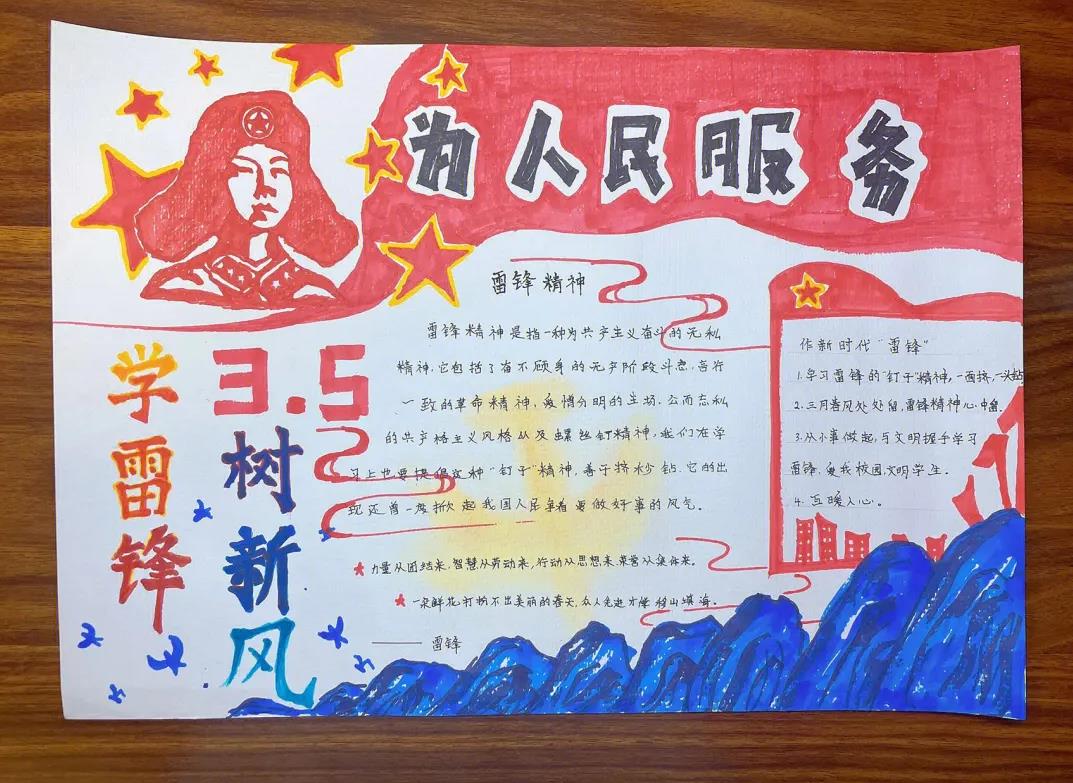 为人民服务
雷锋精神
雷锋精神是指一种为共产主义奋斗的无私
精神,它包括了奋不顾身的无产阶级斗志,言行
一致的革命精神,爱憎分明的立场,公而忘私
的共产主义风格以及螺丝钉精神,我们在学
习上也要提倡这种"钉子"精神,善于挤水钻,它的出
现还曾一度掀起我国人民争着要做好事的风气。
力量从团结来,智慧从劳动来,行动从思想来,荣誉从集体来。
一朵鲜花打扮不出美丽的春天,众人先进才能移山填海。
—— 雷锋
作新时代"雷锋"
1.学习雷锋的"钉子"精神,一面挤,一头钻
2.三月春风处处留,雷锋精神心中留。
3.从小事做起,与文明握手学习
雷锋,爱我校园,文明学生。
4.互暖人心。
学雷锋
3.5
树新风